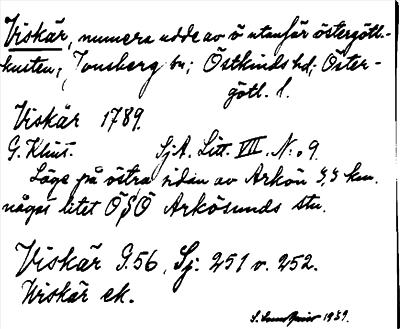 Viskär, numera udde av ö utanför östergötl.-
kusten, Jonsberg sn; Östkinds hd; Öster-
götl. l.
Viskär 1789.
G. Klint. SjA. Litt. VIII. N:o 9.
Läge på östra sidan av Arkön 3,5 km.
något litet ÖSÖ Arkösunds stn.
Viskär G.56, Sj: 251 v. 252.
Wiskär ek.
1939.